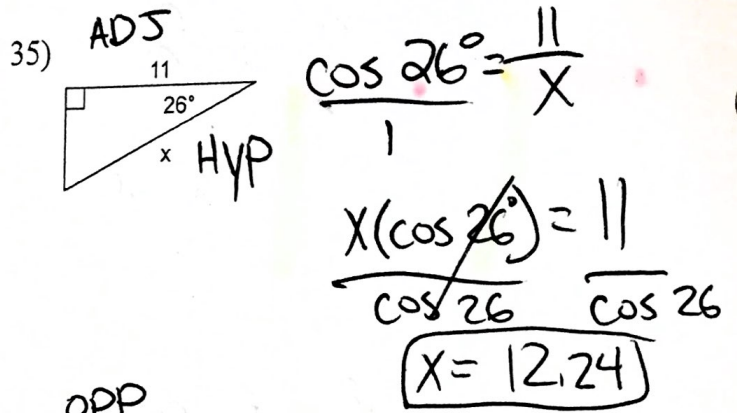 35) ADJ
11
26°
x HYP
cos 26° = 11
1 X
X(cos 26°) = 11
cos 26 cos 26
X = 12.24
OPP